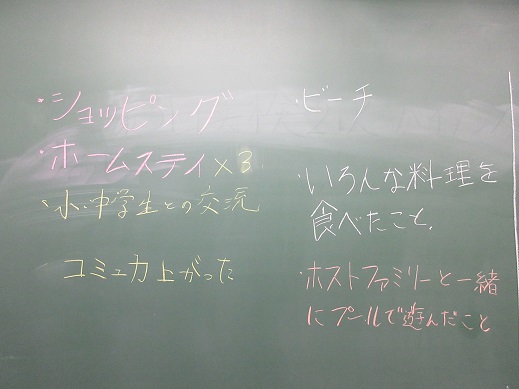 ・ショッピング
・ホームステイ×3
・小・中学生との交流
コミュ力上がった
・ビーチ
・いろんな料理を
食べたこと。
・ホストファミリーと一緒
にプールで遊んだこと